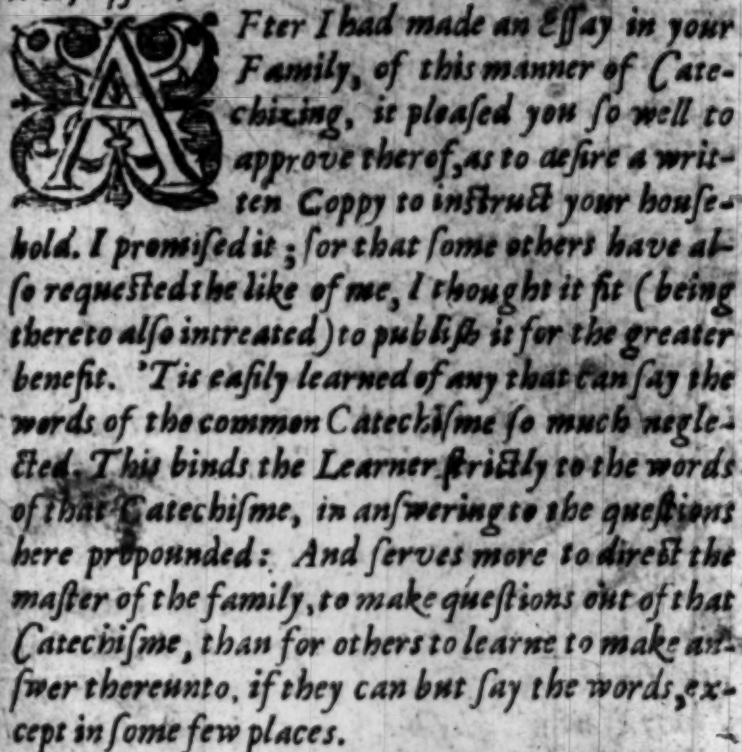 AFter I had made an Eſſay in your
Family, of this manner of Cate-
chizing, it pleaſed you ſo well to
approve therof, as to deſire a writ-
ten Coppy to inſtruct your houſe-
hold. I promiſed it; for that ſome others have al-
ſo requeſted the like of me, I thought it fit (being
thereto alſo intreated) to publiſh it for the greater
benefit. 'Tis eaſily learned of any that can ſay the
words of the common Catechiſme ſo much negle-
cted. This binds the Learner ſtrictly to the words
of that Catechiſme, in anſwering to the queſtions
here propounded: And ſerves more to direct the
maſter of the family, to make queſtions out of that
Catechiſme, than for others to learne to make an-
ſwer thereunto, if they can but ſay the words, ex-
cept in ſome few places.